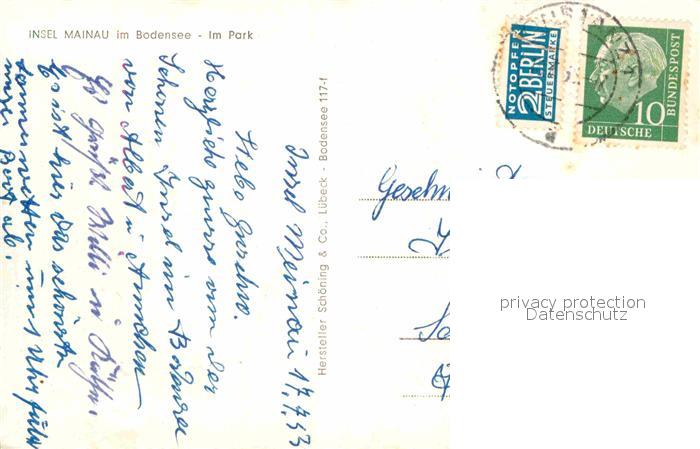 INSEL MAINAU im Bodensee - Im Park
Insel Meinau 17.7.53
Liebe Geschw.
Herzliche grüsse von der
schönen Insel im Bodensee
von Albert u. Annchen
Es grüßt Willi u. Käthe.
Es ist hier das schönste
Sommerwetter um 1 Uhr fährt
unser Boot ab.
Hersteller Schöning & Co., Lübeck - Bodensee 117-f
NOTOPFER
2 BERLIN
STEUERMARKE
KONSTANZ
10
DEUTSCHE
BUNDESPOST
Geschw
privacy protection
Datenschutz